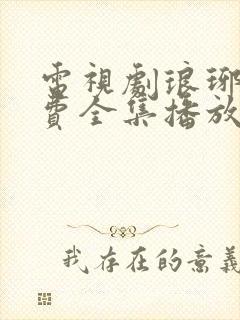 電視劇琅琊
費全集播放
我存在的意義